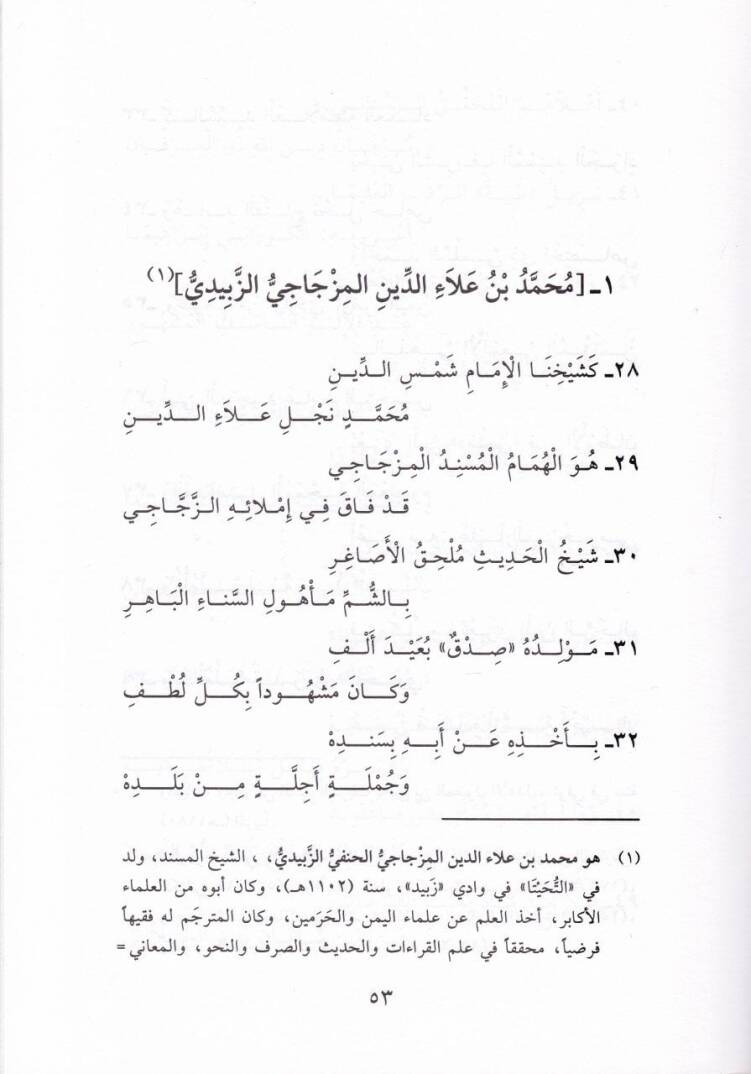 ١ـ [مُحَمَّدُ بْنُ عَلَاءِ الدِّينِ المِزْجَاجِيُّ الزَّبِيدِيُّ](١)
٢٨ـ كَشَيْخِنَا الْإِمَامِ شَمْسِ الـدِّيـنِ
مُحَمَّـدٍ نَجْـلِ عَـلَاءِ الـدِّيـنِ
٢٩ـ هُوَ الْهُمَامُ الْمُسْنِدُ المِـزْجَـاجِي
قَدْ فَاقَ فِي إِمْلَائِهِ الـزَّجَّـاجِي
٣٠ـ شَيْخُ الْحَدِيثِ مُلْحِقُ الْأَصَاغِرِ
بِـالشُّـمِّ مَـأْهُولِ السَّنَاءِ الْبَاهِرِ
٣١ـ مَـوْلِـدُهُ «صِـدْقٌ» بُعَيْـدَ أَلْـفِ
وَكَـانَ مَشْهُوداً بِكُـلِّ لُطْـفِ
٣٢ـ بِـأَخْـذِهِ عَـنْ أَبِـهِ بِسَنَدِهْ
وَجُمْلَـةٍ أَجِلَّـةٍ مِـنْ بَلَـدِهْ
(١) هو محمد بن علاء الدين المِزْجاجيُّ الحنفيُّ الزَّبيديُّ، ، الشيخ المسند، ولد
في «التُّحَيْتَا» في وادي «زَبيد»، سنة (١١٠٢هـ)، وكان أبوه من العلماء
الأكابر، أخذ العلم عن علماء اليمن والحَرَمين، وكان المترجَم له فقيهاً
فرضياً، محققاً في علم القراءات والحديث والصرف والنحو، والمعاني =
٥٣